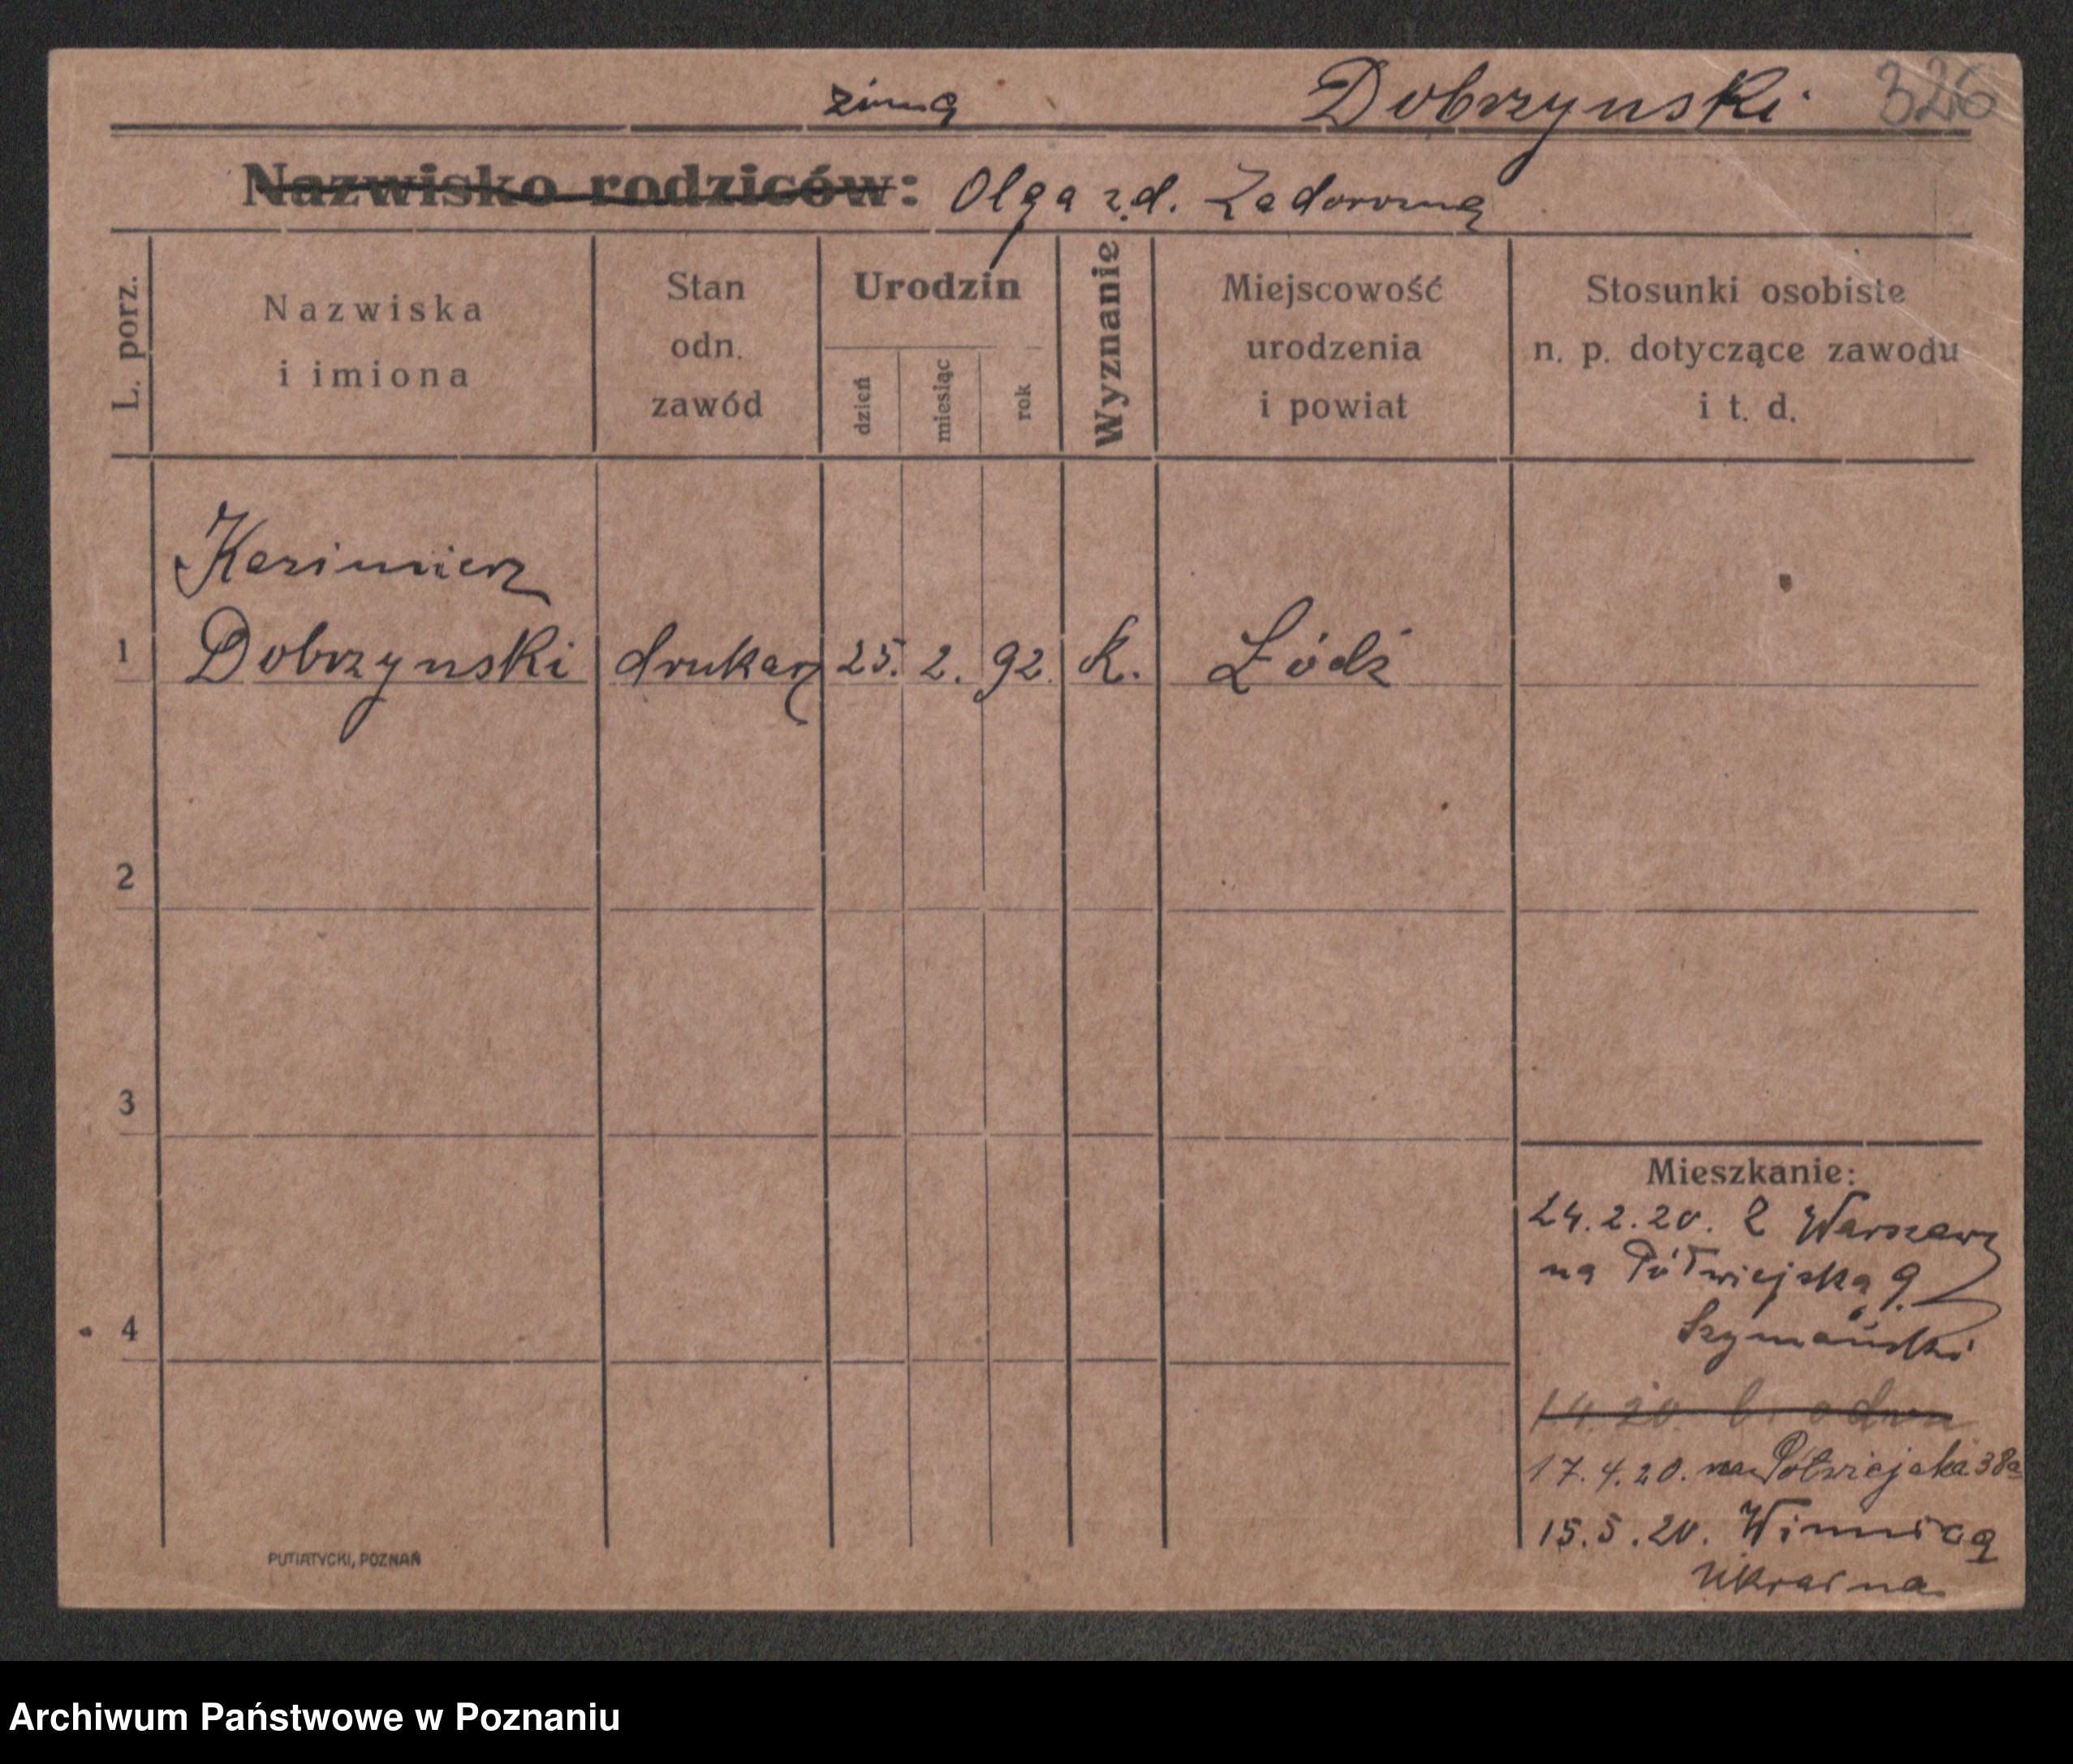 żoną Dobrzynski 326
Nazwisko rodziców: Olga z.d. Zadorozną
L. porz.
Nazwiska
i imiona
Stan
odn.
zawód
Urodzin
dzień
miesiąc
rok
Wyznanie
Miejscowość
urodzenia
i powiat
Stosunki osobiste
n. p. dotyczące zawodu
i t. d.
Kazimierz
1 Dobrzynski drukarz 25. 2. 92. k. Łódź
2
3
4
Mieszkanie:
24.2.20. z Warszawy
na Półwiejską 9.
Szymański
17.4.20. na Półwiejska 38a
15.5.20. Winnica
Ukraina
PUTIATYCKI, POZNAŃ
Archiwum Państwowe w Poznaniu